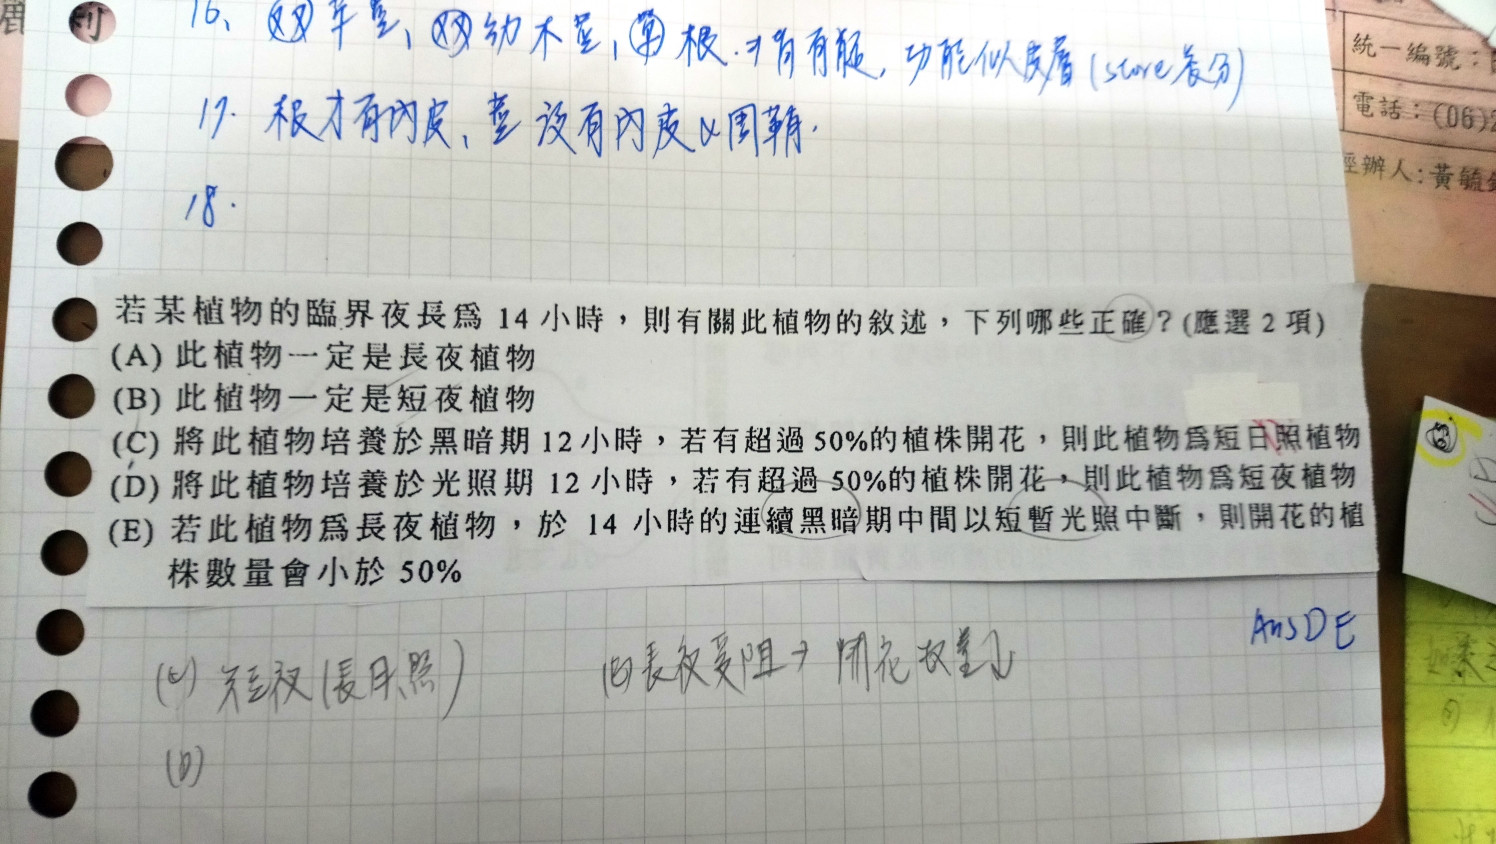 利
16、双草莖、双幼木莖、單根.才有有髓,功能似皮層(store養分)
17. 根才有內皮、莖沒有內皮&周鞘.
18.
統一編號:
電話:(06)2
經辦人:黃毓
若某植物的臨界夜長為 14 小時,則有關此植物的敘述,下列哪些正確?(應選 2 項)
(A) 此植物一定是長夜植物
(B) 此植物一定是短夜植物
(C) 將此植物培養於黑暗期 12 小時,若有超過 50%的植株開花,則此植物為短日照植物
(D) 將此植物培養於光照期 12 小時,若有超過 50%的植株開花,則此植物為短夜植物
(E) 若此植物為長夜植物,於 14 小時的連續黑暗期中間以短暫光照中斷,則開花的植
株數量會小於 50%
Ans DE
(C) 短夜(長日照)
(E) 長夜受阻→ 開花數量↓
(D)